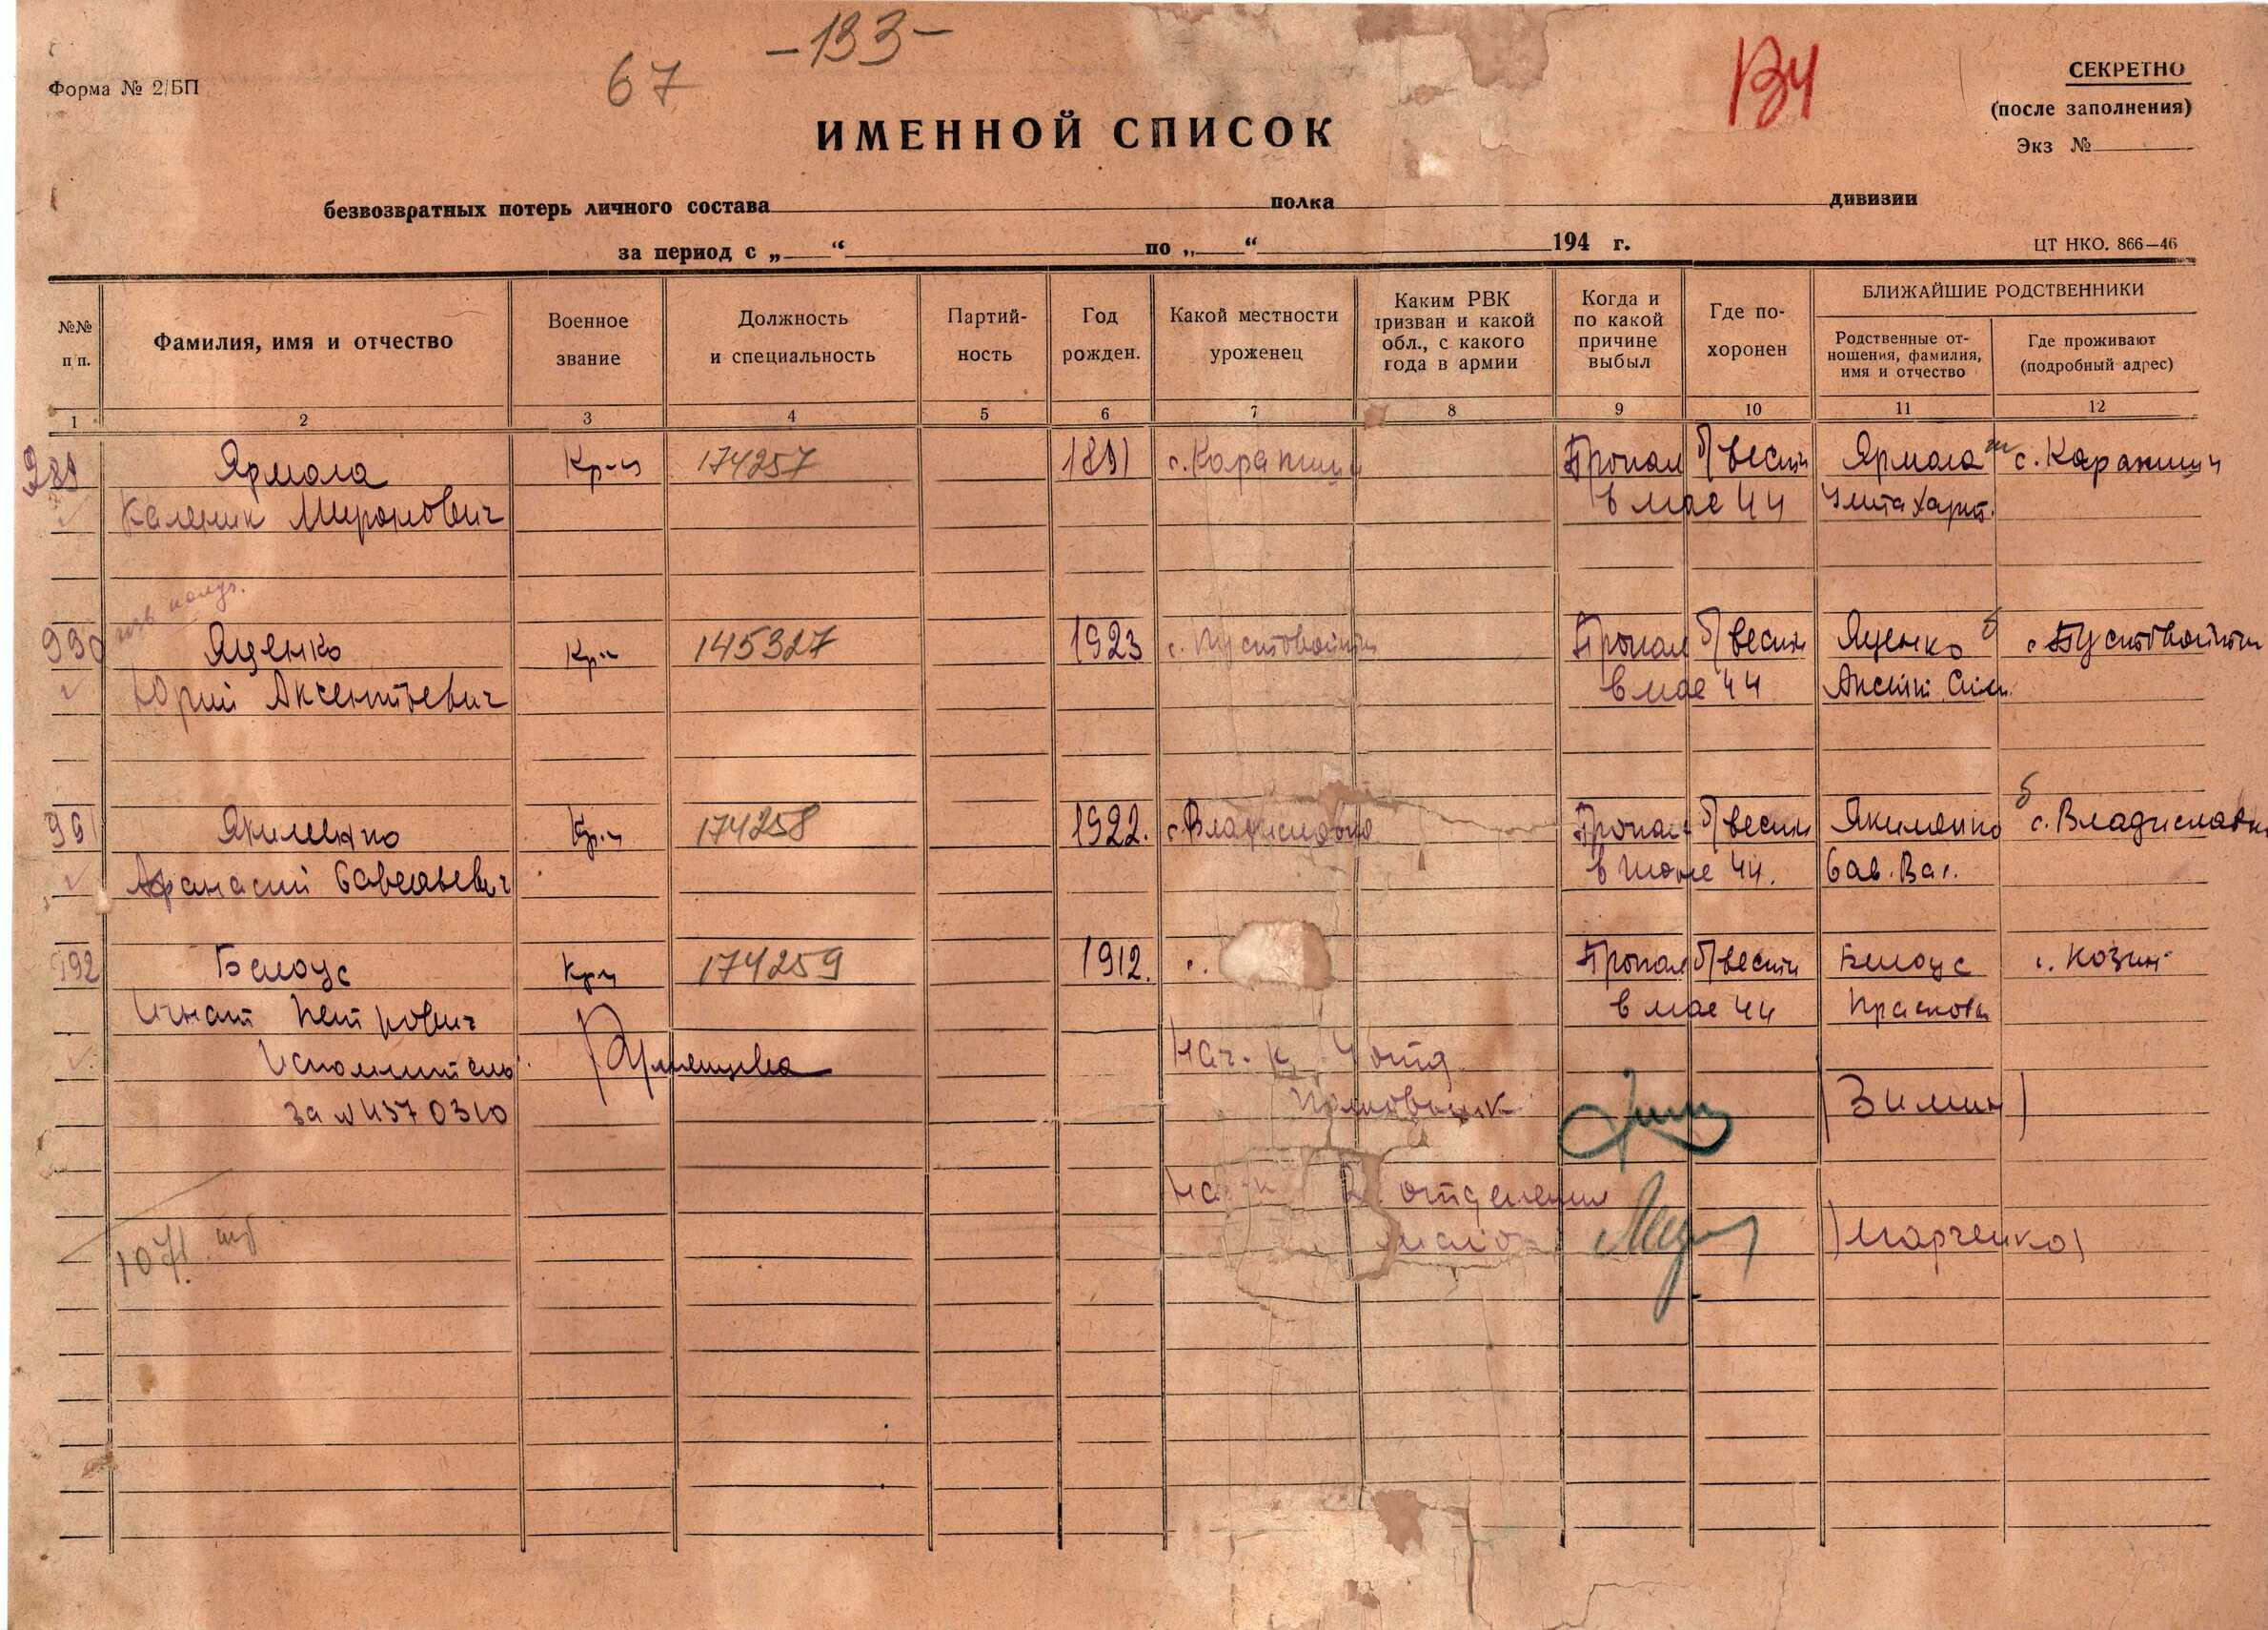 -133-
67
В4
Форма № 2/БП
СЕКРЕТНО
(после заполнения)
Экз №
ИМЕННОЙ СПИСОК
безвозвратных потерь личного состава полка дивизии
за период с „ “ по „ “ 194 г.
ЦТ НКО. 866—46
№№ п п.
Фамилия, имя и отчество
Военное звание
Должность и специальность
Партий- ность
Год рожден.
Какой местности уроженец
Каким РВК призван и какой обл., с какого года в армии
Когда и по какой причине выбыл
Где по- хоронен
БЛИЖАЙШИЕ РОДСТВЕННИКИ
Родственные от- ношения, фамилия, имя и отчество
Где проживают (подробный адрес)
1 2 3 4 5 6 7 8 9 10 11 12
989 Ярмола Кр-ц 174257 1891 с. Карапиши Пропал б/вести Ярмола ж с. Карапиши
Каленик Миронович в мае 44 Улита Харит.
изв получ.
990 Яценко Кр-ц 145327 1923 с. Пустовойты Пропал б/вести Яценко с. Пустовойты
Юрий Аксентьевич в мае 44 Аксент.
991 Якименко Кр-ц 174258 1922. с. Владиславка Пропал б/вести Якименко с. Владиславка
Афанасий Савельевич в июне 44. Сав. Вас.
992 Белоус Кр-ц 174259 1912. с. Пропал б/вести Белоус с. Козин
Игнат Петрович в мае 44 Прасковья
Исполнитель Нач. отд
за №4570310 Полковник (Зимин)
Нач отделения
107 майор (Марченко)